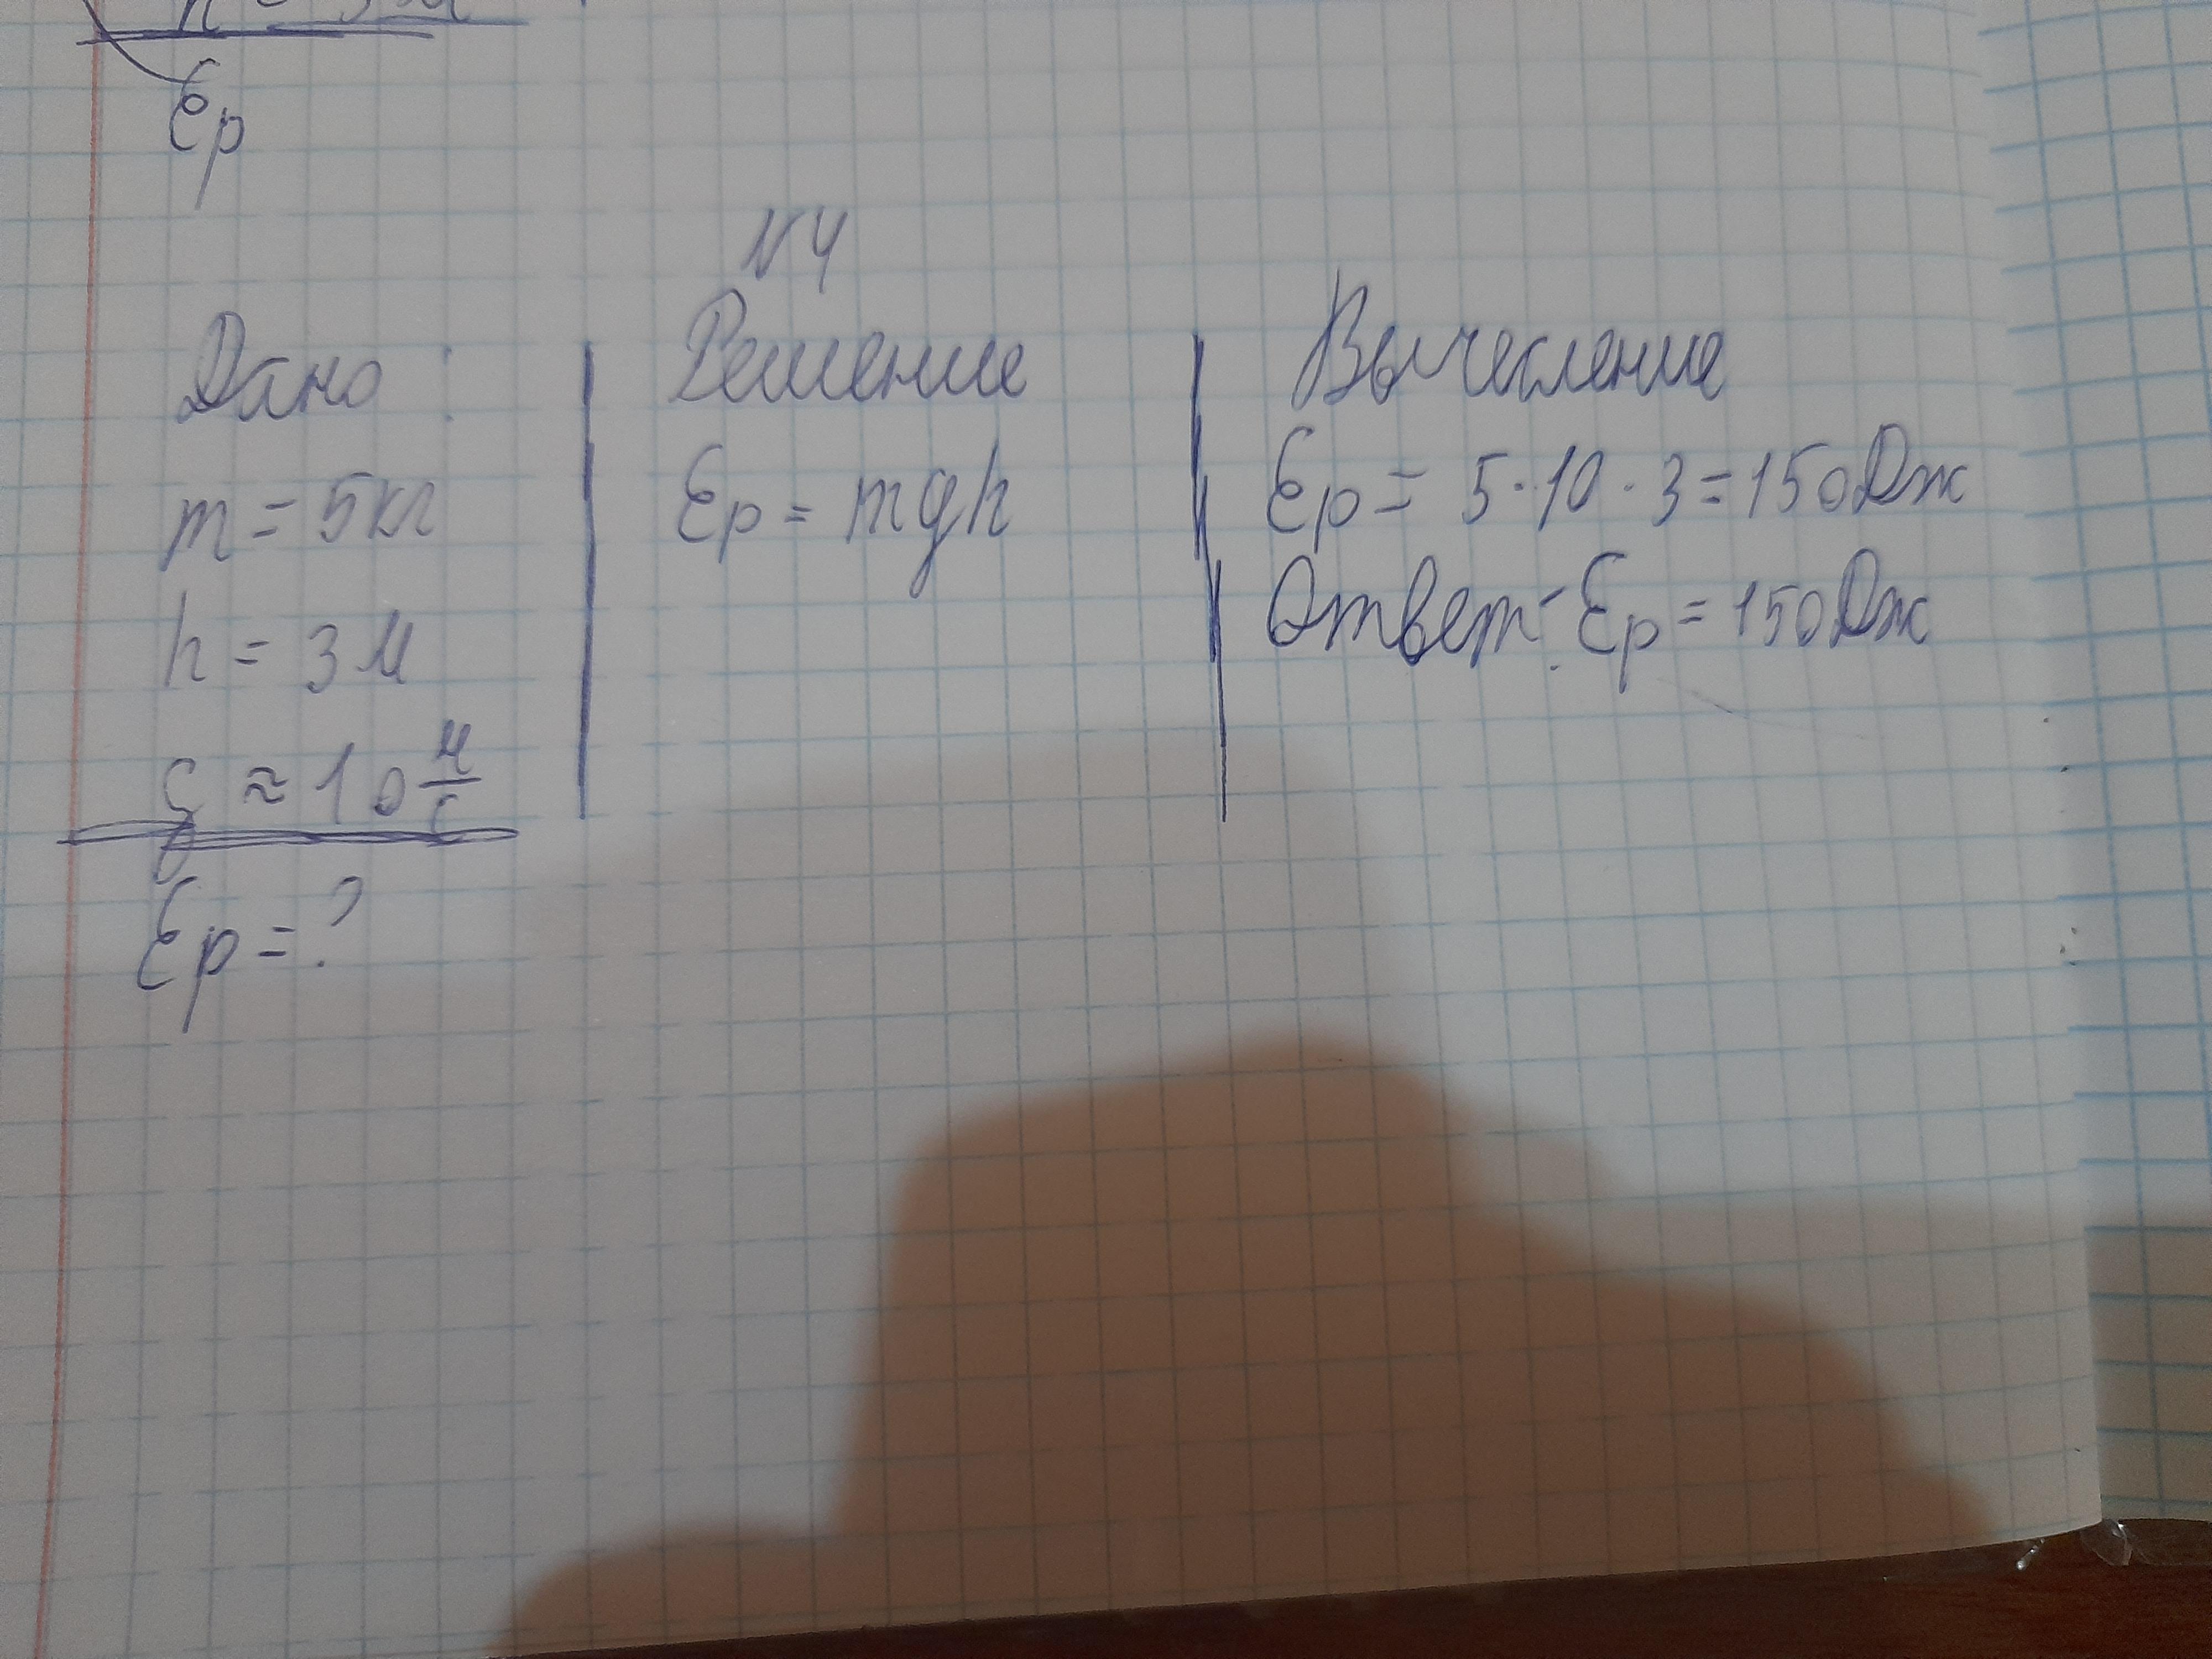 h = 3м
Ep
N4
Дано:
m = 5кг
h = 3м
g ≈ 10 м/с
Ep = ?
Решение
Ep = mgh
Вычесление
Ep = 5·10·3=150Дж
Ответ: Ep = 150Дж